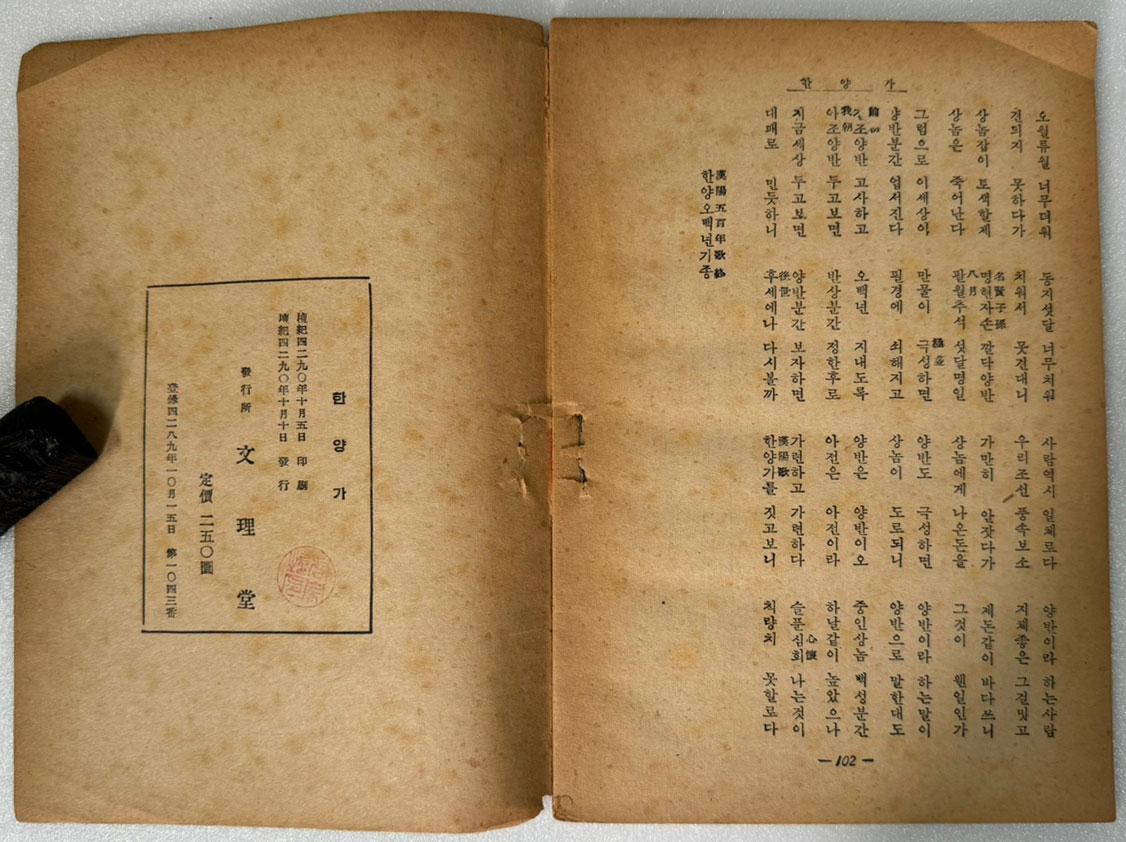 한양가
오월류월 너무더워 동지섯달 너무치워 사람역시 일체로다 양반이라 하는사람
견듸지 못하다가 치워서 못견대니 우리조선 풍속보소 지체좋은 그걸밋고
名賢子孫
상놈잡이 토색할제 명현자손 깔닥양반 가만히 안잣다가 제돈같이 바다쓰니
八月
상놈은 죽어난다 팔월추석 섯달명일 상놈에게 나온돈을 그것이 웬일인가
그럼으로 이세상이 만물이 극성하면 양반도 극성하면 양반이라 하는말이
양반분간 업서진다 필경에 쇠해지고 상놈이 도로되니 양반으로 말한대도
조양반 고사하고 오백년 지내도록 양반은 양반이오 중인상놈 백성분간
我朝
아조양반 두고보면 반상분간 정한후로 아전은 아전이라 하날같이 높았으나
心懷
지금세상 두고보면 양반분간 보자하면 가련하고 가련하다 슬푼심회 나는것이
後世 漢陽歌
대패로 민듯하니 후세에나 다시볼까 한양가를 짓고보니 칙량치 못할로다
漢陽五百年歌終
한양오백년기종
—102—
한양가
檀紀四二九〇年十月五日 印刷
檀紀四二九〇年十月十日 發行
發行所 文理堂
定價 二五〇圜
登錄四二八九年一〇月一五日 第一〇四三番